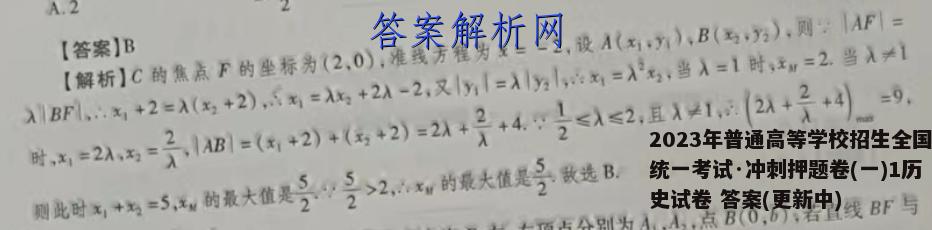 A. 2
2
答案解析网
【答案】B
【解析】C 的焦点 F 的坐标为(2,0),准线方程为 x=-2,设 A(x₁,y₁),B(x₂,y₂),则∵|AF|=
λ|BF|,∴x₁+2=λ(x₂+2),∴x₁=λx₂+2λ-2,又|y₁|=λ|y₂|,∴x₁=λ²x₂,当 λ=1 时,x_M=2. 当 λ≠1
时,x₁=2λ,x₂=2/λ,|AB|=(x₁+2)+(x₂+2)=2λ+2/λ+4.∵1/2≤λ≤2,且 λ≠1,∴(2λ+2/λ+4)max=9,
则此时 x₁+x₂=5,x_M 的最大值是5/2.∵5/2>2,∴x_M 的最大值是5/2.故选 B.
2023年普通高等学校招生全国
统一考试·冲刺押题卷(一)1历
史试卷 答案(更新中)
右顶点分别为 A₁,A₂,点 B(0,b),若直线 BF 与